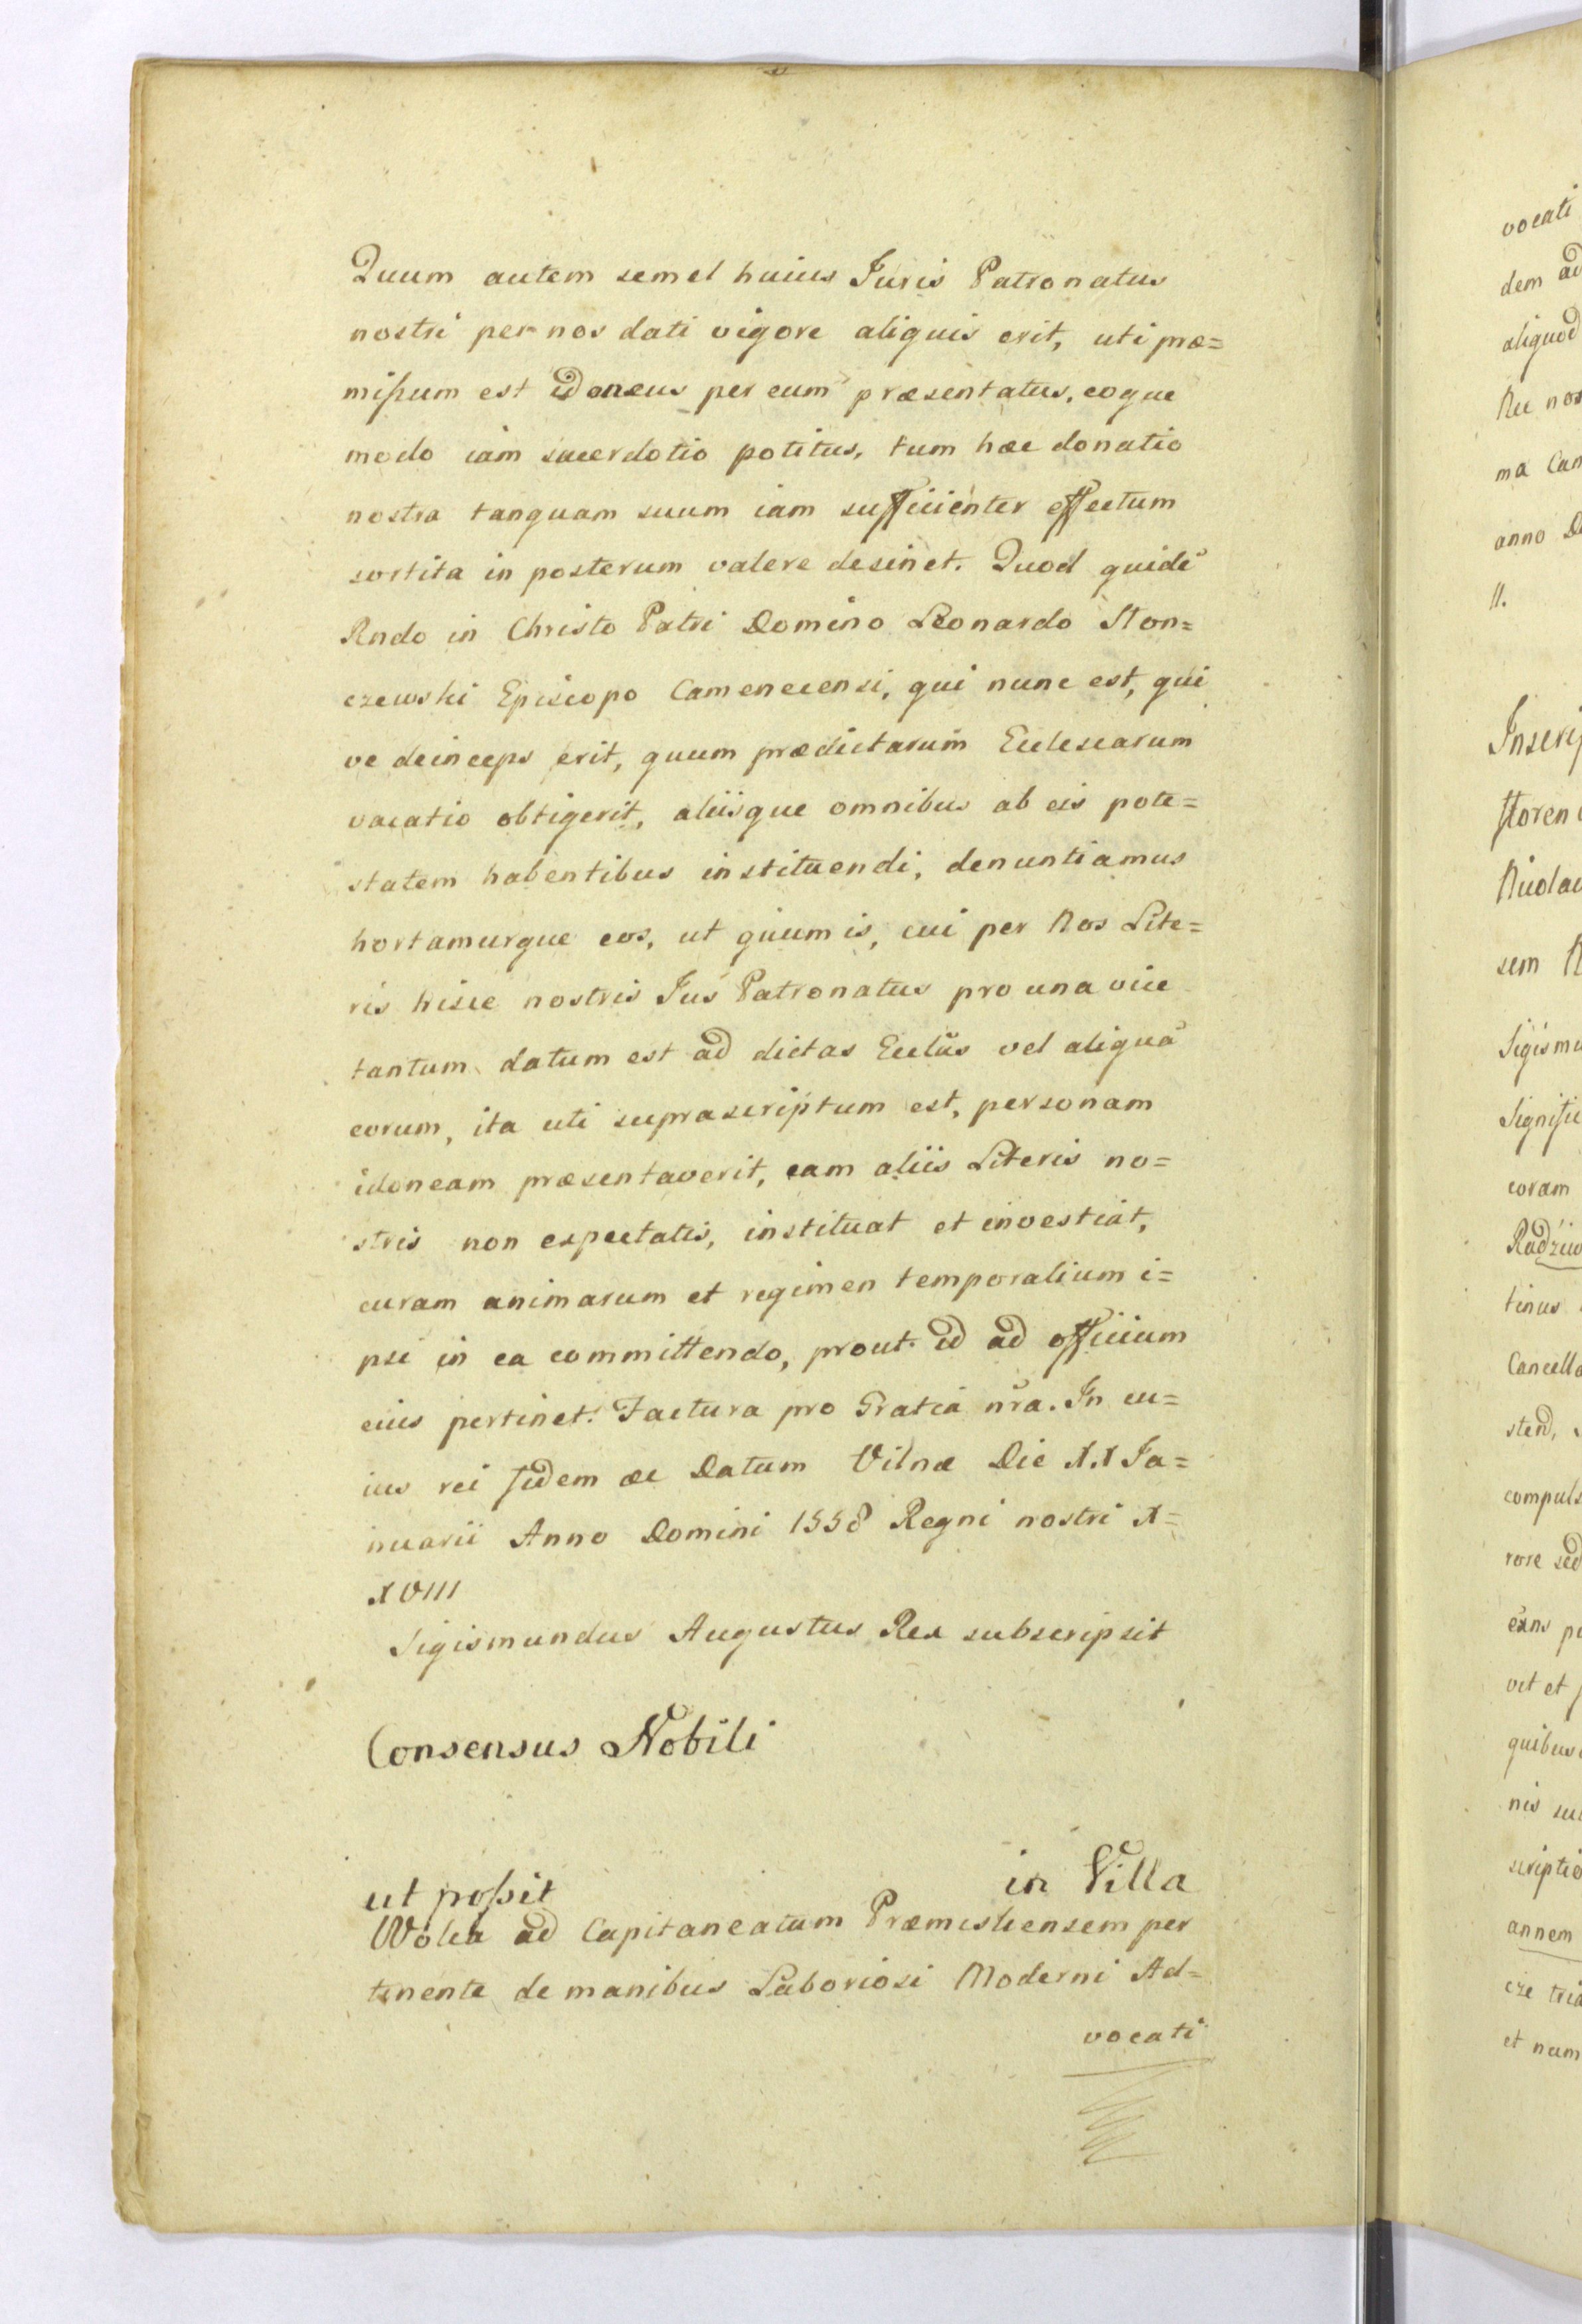 Quum autem semel huius Juris Patronatus
nostri per nos dati vigore aliquis erit, uti præ=
mißum est idoneus per eum præsentatus, eoque
modo iam sacerdotio potitus, tum hæc donatio
nostra tanquam suum iam sufficienter effectum
sortita in posterum valere desinet. Quod quidē
Rndo in Christo Patri Domino Leonardo Slon=
czewski Episcopo Camenecensi, qui nunc est, qui
ve deinceps erit, quum prædictarum Ecclesiarum
vacatio obtigerit, aliisque omnibus ab eis pote=
statem habentibus instituendi, denuntiamus
hortamurque eos, ut quum is, cui per Nos Lite=
ris hisce nostris Jus Patronatus pro una vice
tantum datum est ad dictas Ecclūs vel aliquā
eorum, ita uti suprascriptum est, personam
idoneam præsentaverit, eam aliis Literis no=
stris non expectatis, instituat et investiat,
curam animarum et regimen temporalium i=
psi in ea committendo, prout id ad officium
eius pertinet. Factura pro Gratia nrā. In cu=
ius rei fidem &c Datum Vilnæ Die X.X Ja=
nuarii Anno Domini 1558 Regni nostri X=
XVIII
Sigismundus Augustus Rex subscripsit
Consensus Nobili
ut poßit in Villa
Wolia ad Capitaneatum Præmisliensem per
tinente de manibus Laboriosi Moderni Ad=
vocati
vocati
dem ad
aliquod
Nic nos
ma Can
anno D
II.
Inscrip
storen
Nicola
sem N
Sigismu
Signific
coram
Radziw
tinus
Cancella
stend,
compuls
rore sed
vit et
quibus
nis su
scriptio
annem
cze tria
et num